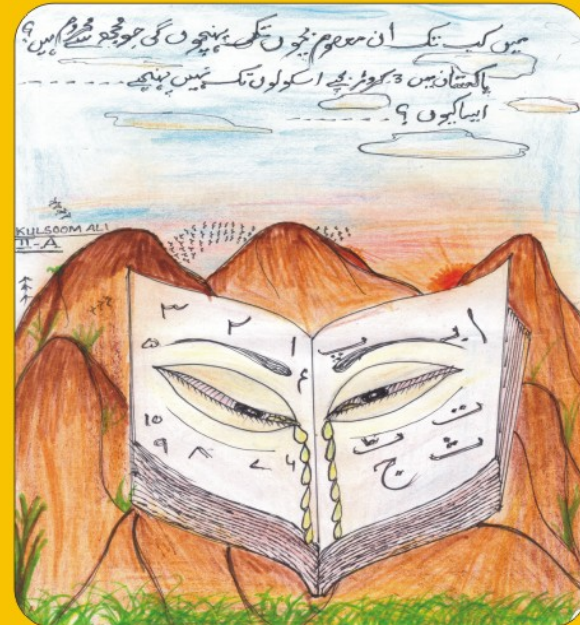 میں کب تک ان معصوم بچوں تک پہنچوں گی جو مجھ سے محروم ہیں؟
پاکستان میں 3 کروڑ بچے اسکولوں تک نہیں پہنچے ------
------ ایسا کیوں ؟
KULSOOM ALI
II-A
ا ب پ
ت
ٹ ث
ج
۱ ۲ ۳
۴ ۵
۶ ۷ ۸ ۹
10